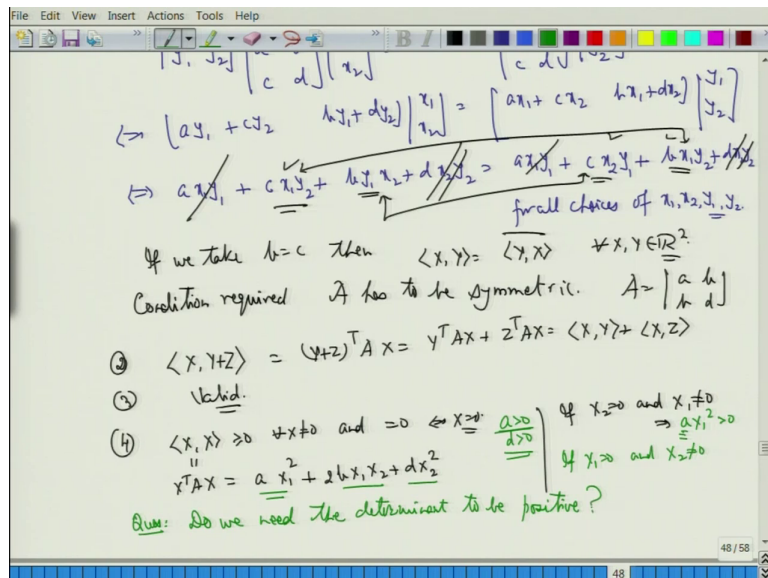 File Edit View Insert Actions Tools Help
[y₁ y₂] [ c d] [ x₂] [ c d] [y₂]
⇔ [ay₁ + cy₂ by₁ + dy₂] [x₁ x₂] = [ax₁ + cx₂ bx₁ + dx₂] [y₁ y₂]
⇔ ax₁y₁ + cx₁y₂ + by₁x₂ + dx₂y₂ = ax₁y₁ + cx₂y₁ + bx₁y₂ + dx₂y₂
for all choices of x₁, x₂, y₁, y₂.
If we take b=c then ⟨X, Y⟩ = ⟨Y, X⟩ ∀ X, Y ∈ ℝ².
Condition required A has to be symmetric. A = [a b b d]
② ⟨X, Y+Z⟩ = (Y+Z)ᵀAX = YᵀAX + ZᵀAX = ⟨X, Y⟩ + ⟨X, Z⟩
③ Valid.
④ ⟨X, X⟩ ≥0 ∀X≠0 and =0 ⇔ X=0. a>0 d>0
If x₂=0 and x₁≠0
⇒ ax₁²>0
XᵀAX = a x₁² + 2bx₁x₂ + dx₂²
If x₁=0 and x₂≠0
Ques: Do we need the determinant to be positive?
48/58
48